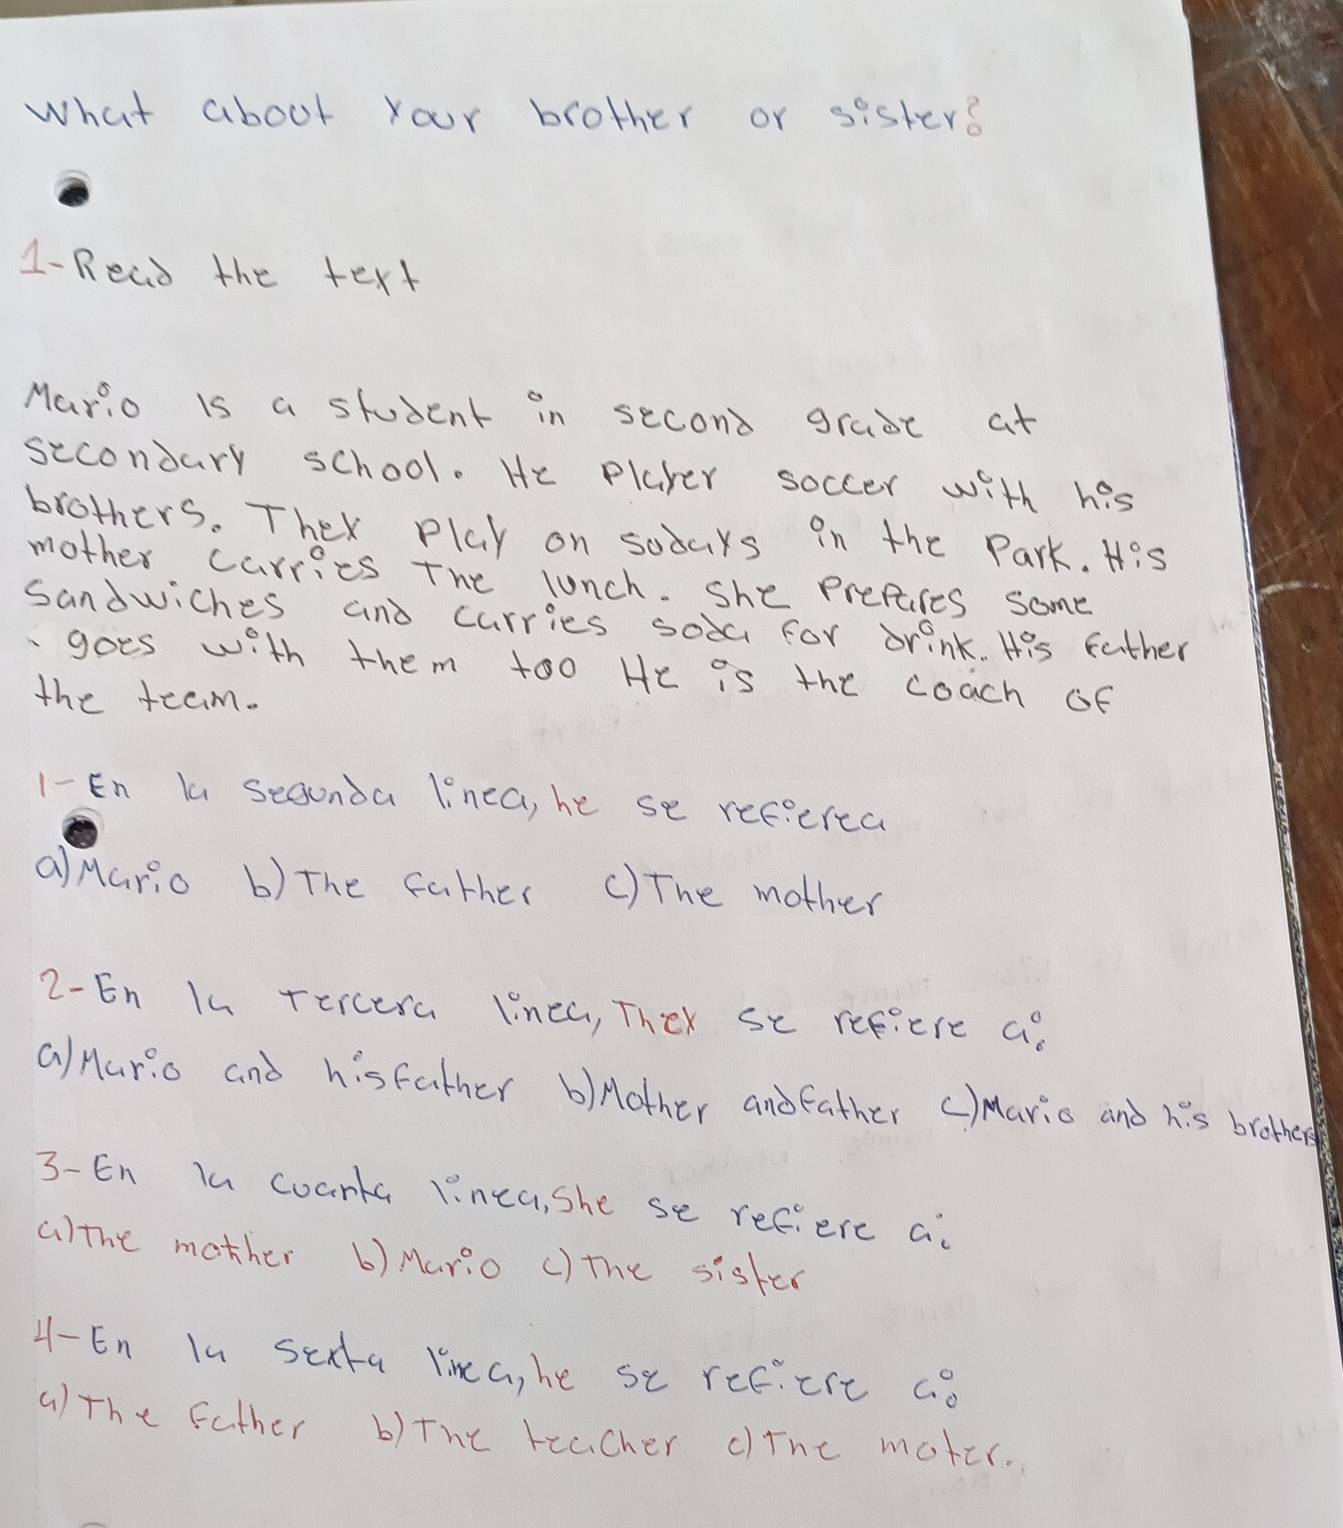 What about your brother or sister?
1-Read the text
Mario is a student in second grade at
secondary school. He player soccer with his
brothers. They play on sodays in the park. His
mother carries The lunch. She prepares some
Sandwiches and carries soda for drink. His father
goes with them too He is the coach of
the team.
1-En la segunda linea, he se refierea
a) Mario b) The father c) The mother
2-En la Tercera linea, They se refiere a:
a) Mario and hisfather b) Mother andfather c) Mario and his brothers
3-En la cuarta linea, She se refiere a:
a) The mother b) Mario c) The sister
4-En la sexta linea, he se refiere a:
a) The father b) The teacher c) The moter.